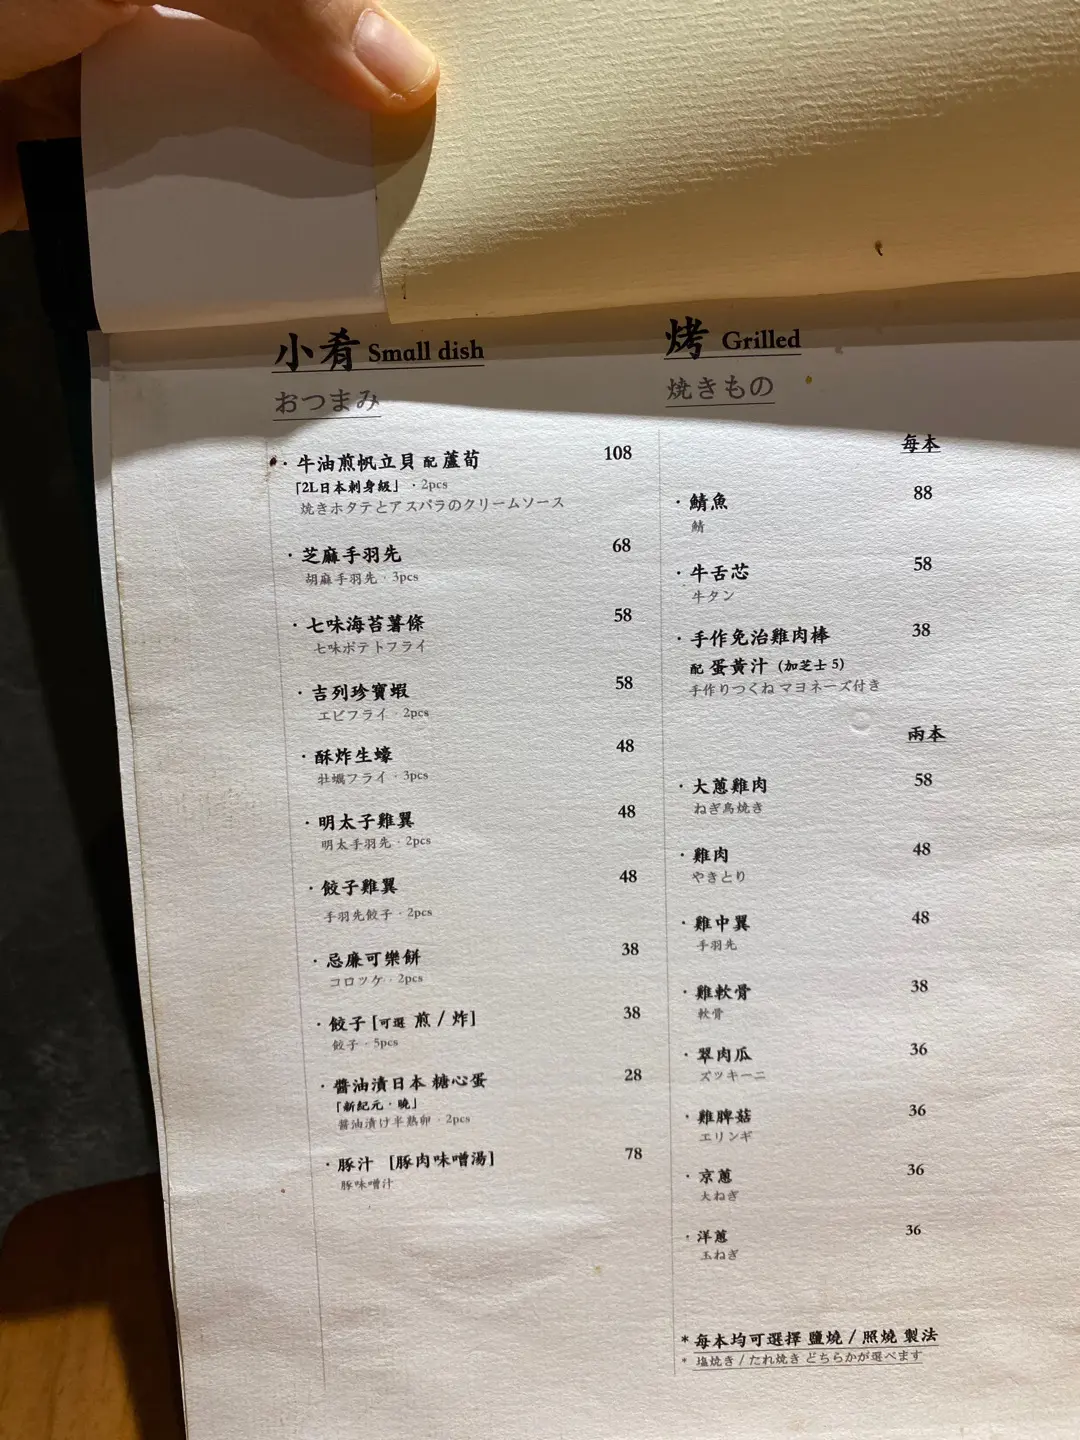 小肴 Small dish
おつまみ
・牛油煎帆立貝 配 蘆荀 108
「2L日本刺身級」・2pcs
焼きホタテとアスパラのクリームソース
・芝麻手羽先 68
胡麻手羽先・3pcs
・七味海苔薯條 58
七味ポテトフライ
・吉列珍寶蝦 58
エビフライ・2pcs
・酥炸生蠔 48
牡蠣フライ・3pcs
・明太子雞翼 48
明太手羽先・2pcs
・餃子雞翼 48
手羽先餃子・2pcs
・忌廉可樂餅 38
コロッケ・2pcs
・餃子 [可選 煎 / 炸] 38
餃子・5pcs
・醬油漬日本 糖心蛋 28
「新紀元・曉」
醤油漬け半熟卵・2pcs
・豚汁 [豚肉味噌湯] 78
豚味噌汁
烤 Grilled
焼きもの
每本
・鯖魚 88
鯖
・牛舌芯 58
牛タン
・手作免治雞肉棒 38
配 蛋黃汁 (加芝士 5)
手作りつくね マヨネーズ付き
兩本
・大蔥雞肉 58
ねぎ鳥焼き
・雞肉 48
やきとり
・雞中翼 48
手羽先
・雞軟骨 38
軟骨
・翠肉瓜 36
ズッキーニ
・雞脾菇 36
エリンギ
・京蔥 36
大ねぎ
・洋蔥 36
玉ねぎ
* 每本均可選擇 鹽燒 / 照燒 製法
* 塩焼き / たれ焼き どちらかが選べます